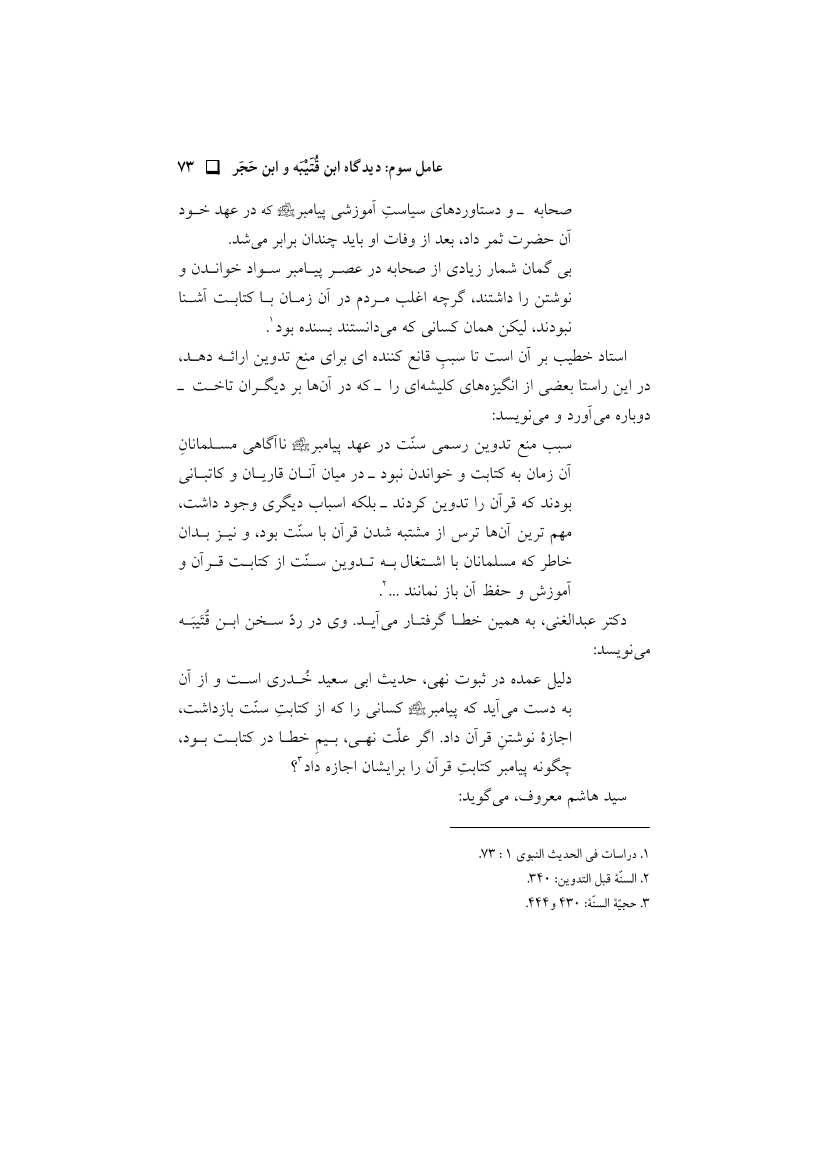 عامل سوم: دیدگاه ابن قُتَیْبَه و ابن حَجَر ❑ ۷۳
صحابه ـ و دستاوردهای سیاستِ آموزشی پیامبرﷺ که در عهد خود
آن حضرت ثمر داد، بعد از وفات او باید چندان برابر می‌شد.
بی گمان شمار زیادی از صحابه در عصر پیامبر سواد خواندن و
نوشتن را داشتند، گرچه اغلب مردم در آن زمان با کتابت آشنا
نبودند، لیکن همان کسانی که می‌دانستند بسنده بود۱.
استاد خطیب بر آن است تا سببِ قانع کننده ای برای منع تدوین ارائه دهد،
در این راستا بعضی از انگیزه‌های کلیشه‌ای را ـ که در آن‌ها بر دیگران تاخت ـ
دوباره می‌آورد و می‌نویسد:
سبب منع تدوین رسمی سنّت در عهد پیامبرﷺ ناآگاهی مسلمانانِ
آن زمان به کتابت و خواندن نبود ـ در میان آنان قاریان و کاتبانی
بودند که قرآن را تدوین کردند ـ بلکه اسباب دیگری وجود داشت،
مهم ترین آن‌ها ترس از مشتبه شدن قرآن با سنّت بود، و نیز بدان
خاطر که مسلمانان با اشتغال به تدوین سنّت از کتابت قرآن و
آموزش و حفظ آن باز نمانند ...۲.
دکتر عبدالغنی، به همین خطا گرفتار می‌آید. وی در ردّ سخن ابن قُتَیبَه
می‌نویسد:
دلیل عمده در ثبوت نهی، حدیث ابی سعید خُدری است و از آن
به دست می‌آید که پیامبرﷺ کسانی را که از کتابتِ سنّت بازداشت،
اجازهٔ نوشتنِ قرآن داد. اگر علّت نهی، بیمِ خطا در کتابت بود،
چگونه پیامبر کتابتِ قرآن را برایشان اجازه داد۳؟
سید هاشم معروف، می‌گوید:
۱. دراسات فی الحدیث النبوی ۱ : ۷۳.
۲. السنّة قبل التدوین: ۳۴۰.
۳. حجیّة السنّة: ۴۳۰ و ۴۴۴.